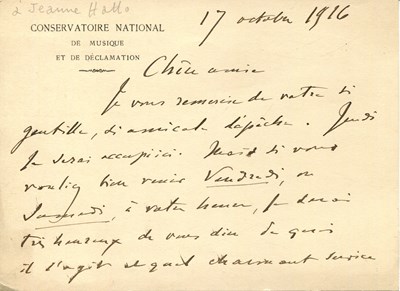 à Jeanne Hatto
CONSERVATOIRE NATIONAL
DE MUSIQUE
ET DE DÉCLAMATION
17 octobre 1916
Chère amie
Je vous remercie de votre si
gentille, si amicale dépêche. Jeudi
je serai occupé ici. Mais si vous
vouliez bien venir Vendredi, ou
Samedi, à votre heure, je serai
très heureux de vous dire de quoi
il s'agit et quel charmant service